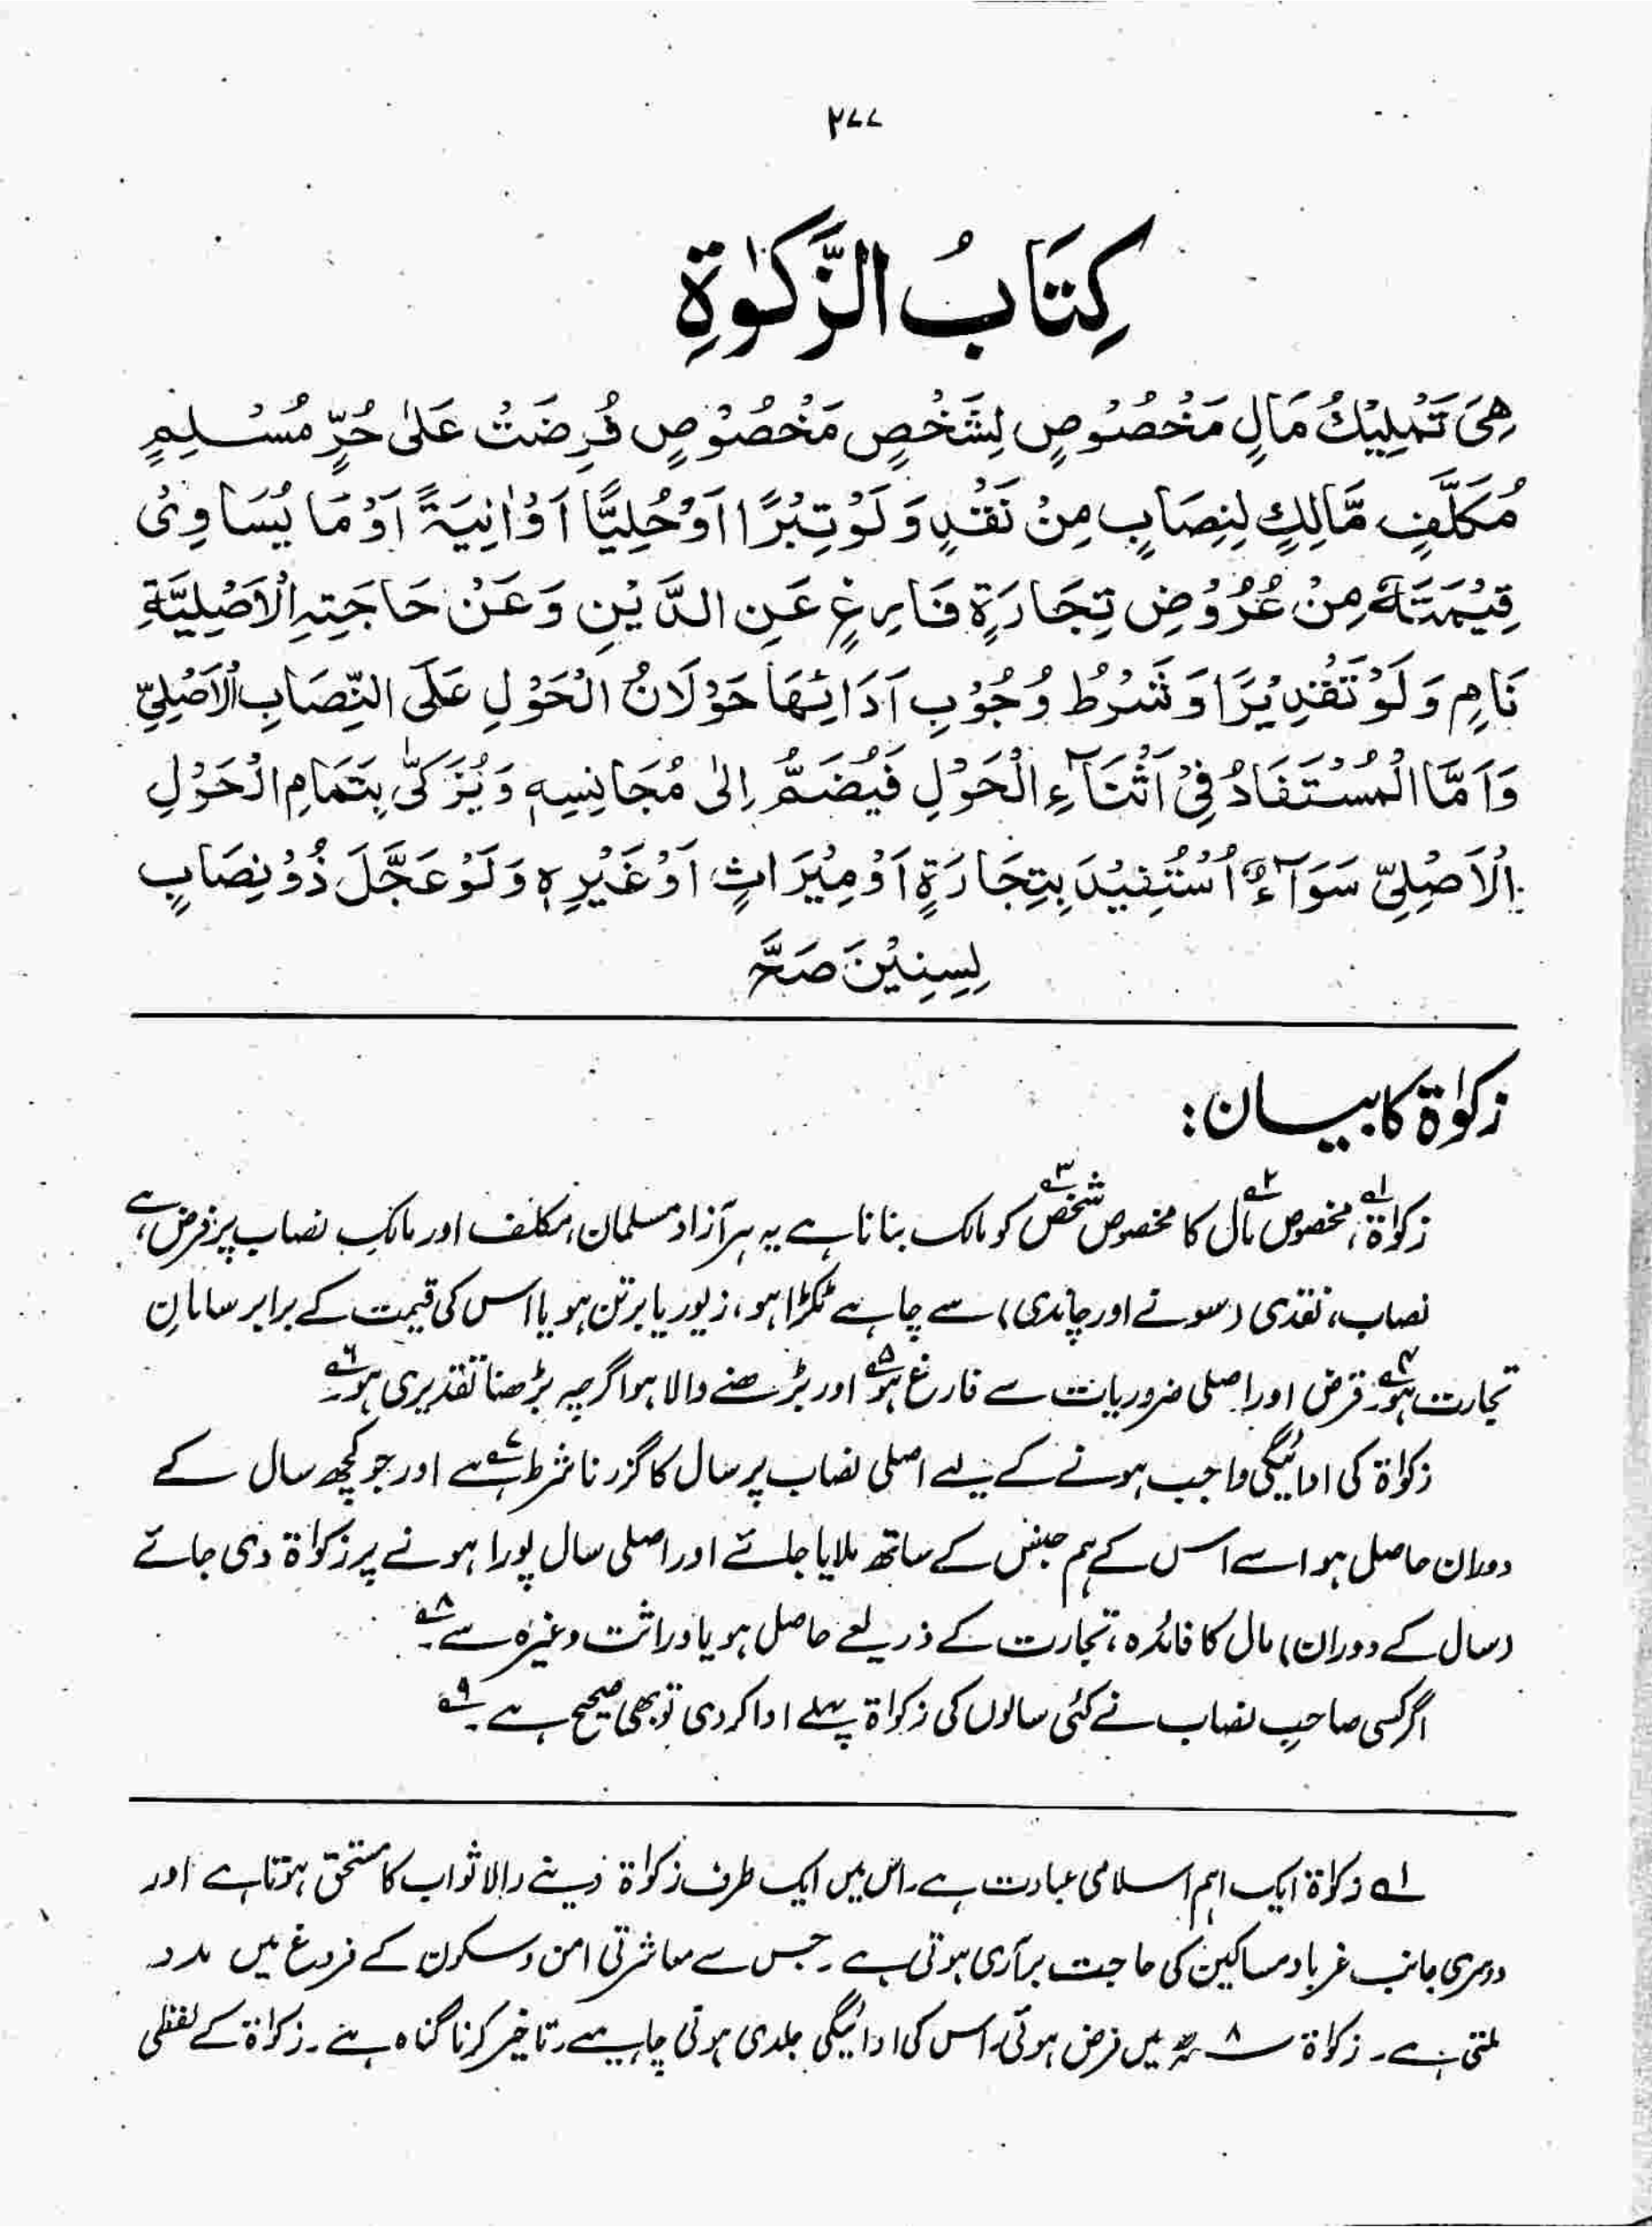 ۲۷۷
كِتَابُ الزَّكٰوةِ
هِىَ تَمْلِيْكُ مَالٍ مَخْصُوْصٍ لِشَخْصٍ مَخْصُوْصٍ فُرِضَتْ عَلٰى حُرٍّ مُسْلِمٍ
مُكَلَّفٍ مَّالِكٍ لِنِصَابٍ مِنْ نَقْدٍ وَلَوْ تِبْرًا اَوْ حُلِيًّا اَوْ اٰنِيَةً اَوْ مَا يُسَاوِىْ
قِيْمَتَهٗ مِنْ عُرُوْضِ تِجَارَةٍ فَارِغٍ عَنِ الدَّيْنِ وَعَنْ حَاجَتِهِ الْاَصْلِيَّةِ
نَامٍ وَلَوْ تَقْدِيْرًا وَشَرْطُ وُجُوْبِ اَدَائِهَا حَوْلَانُ الْحَوْلِ عَلَى النِّصَابِ الْاَصْلِيِّ
وَاَمَّا الْمُسْتَفَادُ فِىْ اَثْنَآءِ الْحَوْلِ فَيُضَمُّ اِلٰى مُجَانِسِهٖ وَيُزَكّٰى بِتَمَامِ الْحَوْلِ
الْاَصْلِيِّ سَوَآءٌ اُسْتُفِيْدَ بِتِجَارَةٍ اَوْ مِيْرَاثٍ اَوْ غَيْرِهٖ وَلَوْ عَجَّلَ ذُوْ نِصَابٍ
لِسِنِيْنَ صَحَّ
زکوٰۃ کا بیان :
زکوٰۃ۱؎، مخصوص مال۲؎ کا مخصوص شخص۳؎ کو مالک بنانا ہے یہ ہر آزاد مسلمان، مکلف اور مالکِ نصاب پر فرض ہے،
نصاب، نقدی (سونے اور چاندی) سے چاہے ٹکڑا ہو، زیور یا برتن ہو یا اس کی قیمت کے برابر سامانِ
تجارت ہو۴؎۔ قرض اور اصلی ضروریات سے فارغ ہو۵؎ اور بڑھنے والا ہو اگرچہ بڑھنا تقدیری ہو۶؎۔
زکوٰۃ کی ادائیگی واجب ہونے کے لیے اصلی نصاب پر سال کا گزرنا شرط ہے۷؎ اور جو کچھ سال کے
دوران حاصل ہو اسے اس کے ہم جنس کے ساتھ ملایا جائے اور اصلی سال پورا ہونے پر زکوٰۃ دی جائے
(سال کے دوران) مال کا فائدہ، تجارت کے ذریعے حاصل ہو یا وراثت وغیرہ سے۔۸؎
اگر کسی صاحبِ نصاب نے کئی سالوں کی زکوٰۃ پہلے ادا کر دی تو بھی صحیح ہے۔۹؎
۱؎ زکوٰۃ ایک اہم اسلامی عبادت ہے۔ اس میں ایک طرف زکوٰۃ دینے والا ثواب کا مستحق ہوتا ہے اور
دوسری جانب غرباء و مساکین کی حاجت برآری ہوتی ہے۔ جس سے معاشرتی امن و سکون کے فروغ میں مدد
ملتی ہے۔ زکوٰۃ ۸؁ھ میں فرض ہوئی۔ اس کی ادائیگی جلدی ہونی چاہیے۔ تاخیر کرنا گناہ ہے۔ زکوٰۃ کے لفظی